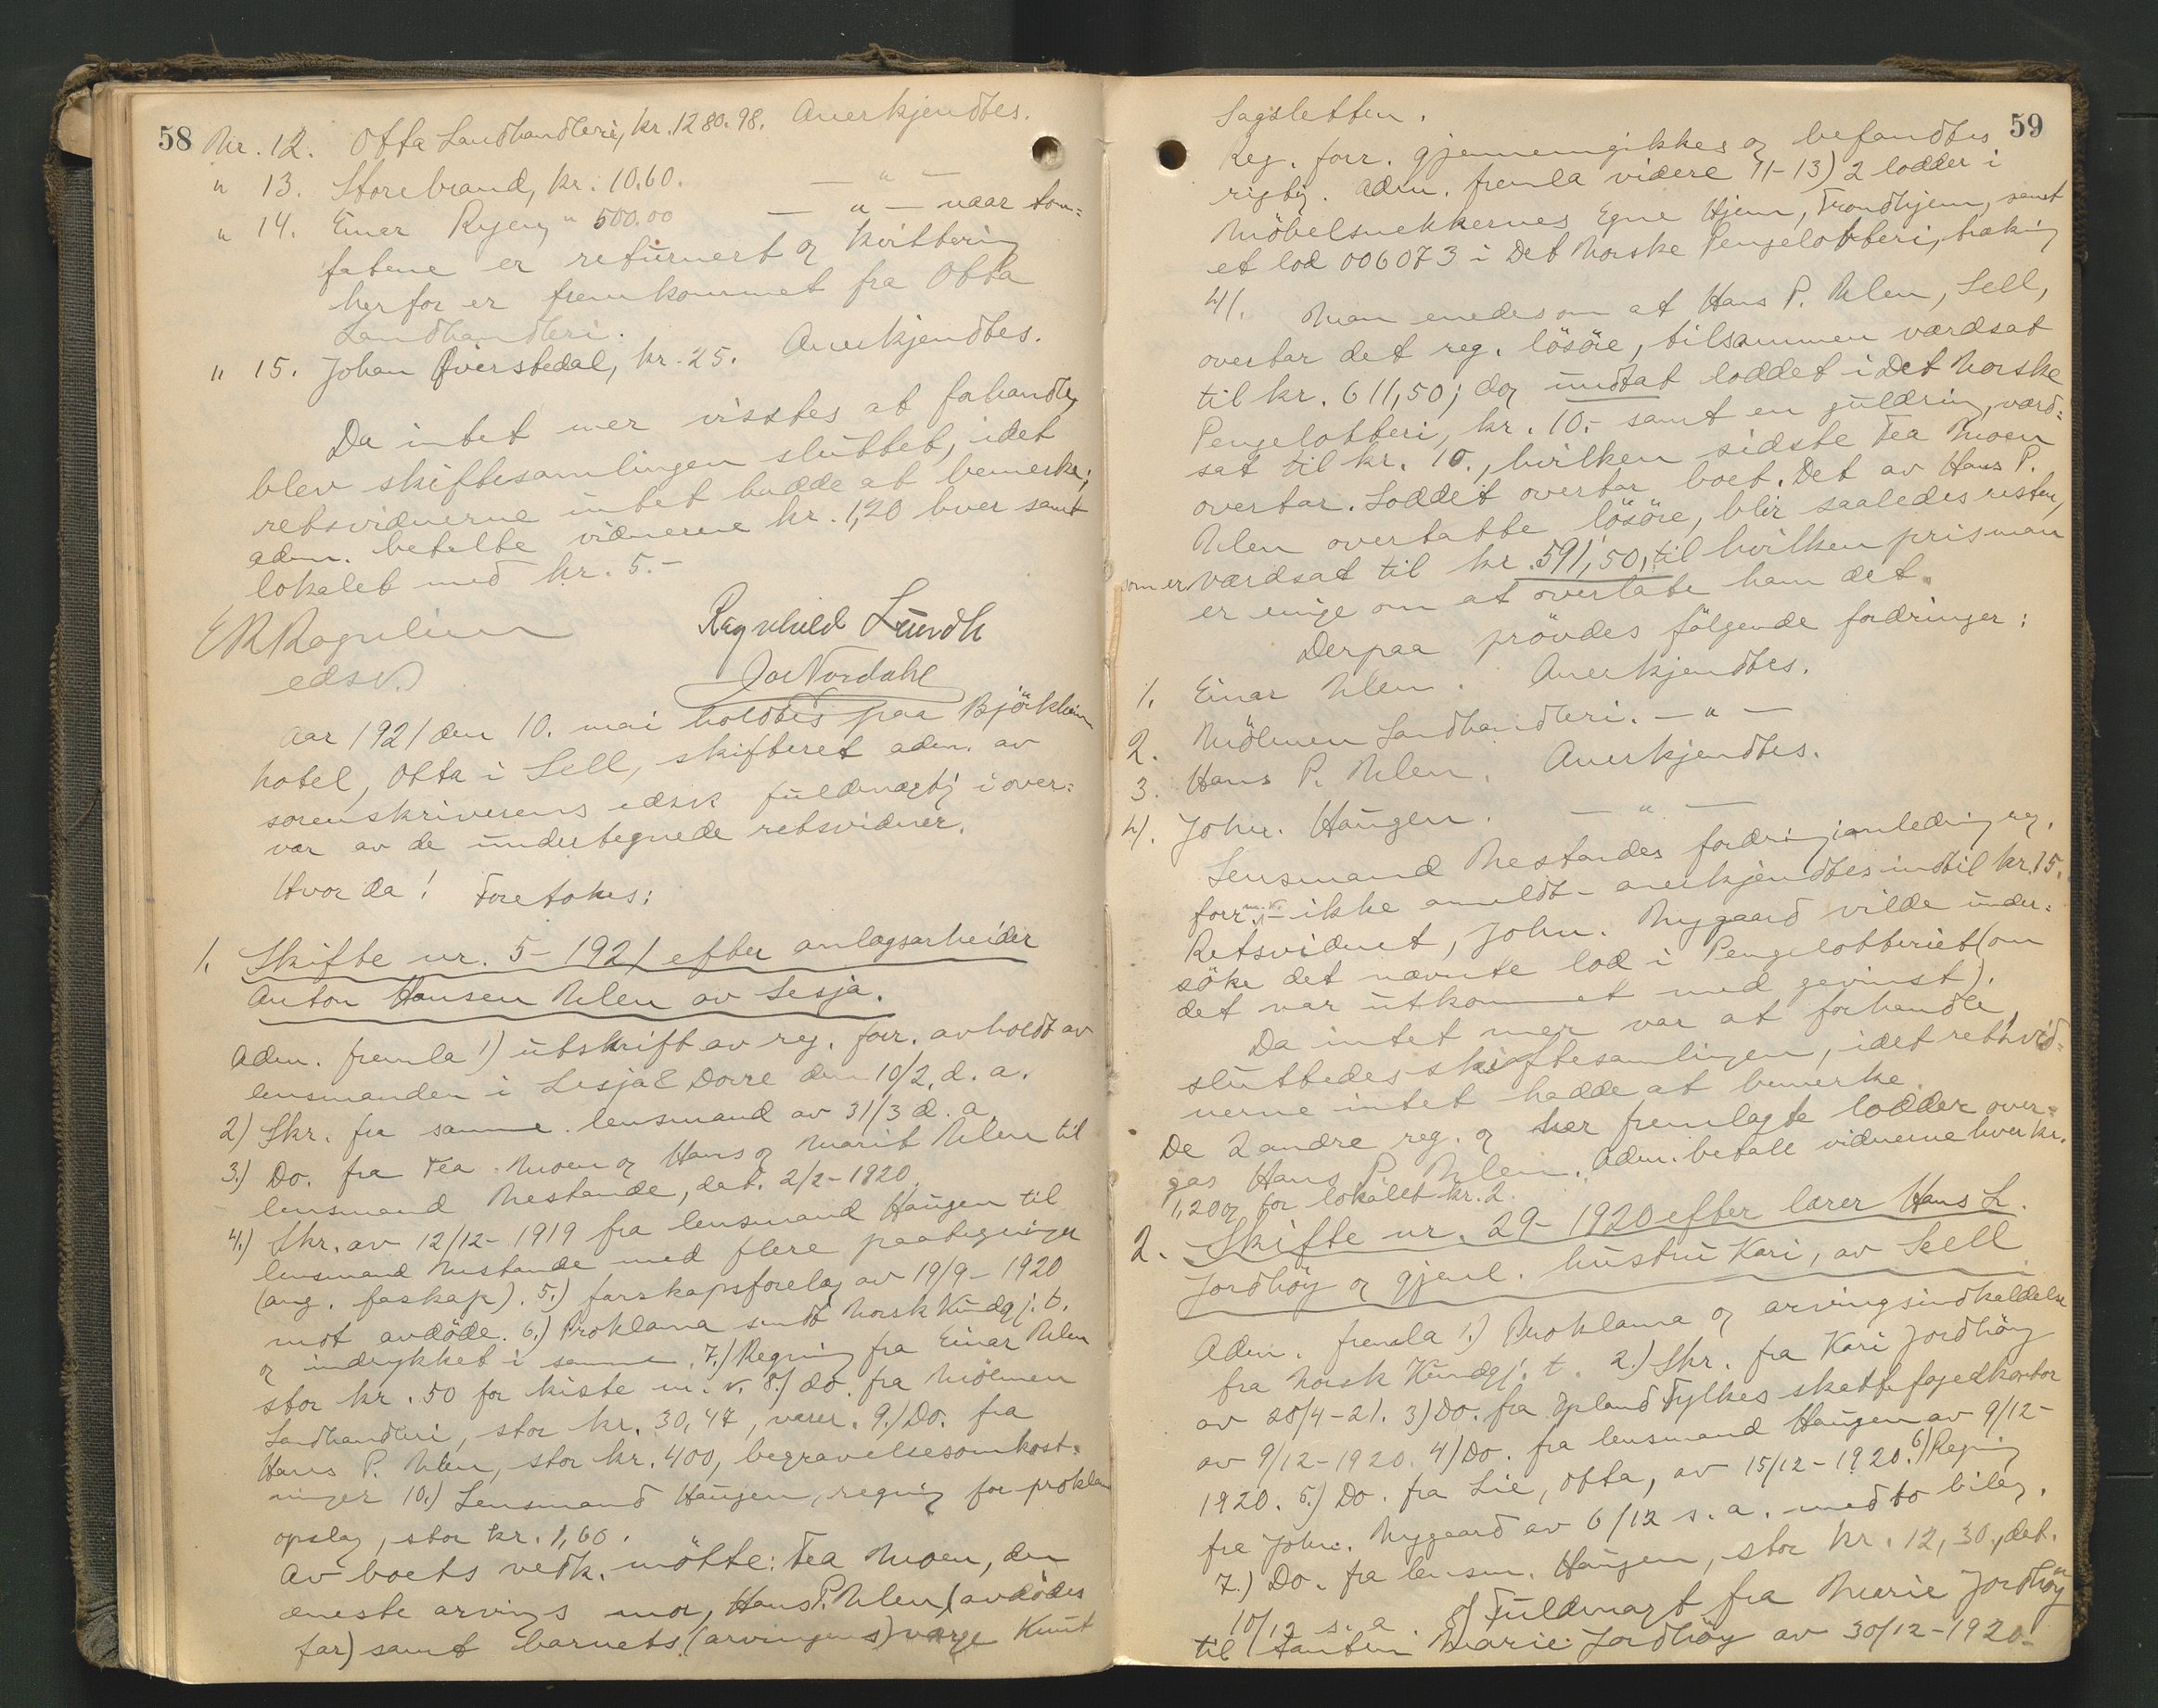 58
Nr. 12. Otta Landhandleri, kr. 1280.98. Anerkjendtes.
" 13. Storebrand, kr. 10.60. — " —
" 14. Einar Ryen, " 500.00 — " — naar tom=
fatene er returnert og kvittering
herfor er fremkommet fra Otta
Landhandleri.
" 15. Johan Øverstedal, kr. 25. Anerkjendtes.
Da intet mer visstes at forhandle,
blev skiftesamlingen sluttet, idet
retsvidnerne intet hadde at bemerke;
adm. betalte vidnerne kr. 1,20 hver samt
lokalet med kr. 5.-
edsv.
Ragnhild Lundh
Jo Nordahl
Aar 1921 den 10. mai holdtes paa Björkheim
hotel, Otta i Sell, skifteret adm. av
sorenskriverens edsv. fuldmægtig i over=
vær av de undertegnede retsvidner.
Hvor da! Foretokes:
1. Skifte nr. 5-1921 efter anlægsarbeider
Anton Hansen Ulen av Lesja.
Adm. fremla 1) utskrift av reg. forr. avholdt av
lensmanden i Lesja & Dovre den 10/2. d. a.
2) Skr. fra samme lensmand av 31/3 d. a.
3.) Do. fra Tea Moen og Hans og Marit Ulen til
lensmand Nestande, dat. 2/2-1920.
4.) Skr. av 12/12-1919 fra lensmand Haugen til
lensmand Nestande med flere paategninger
(ang. faskap). 5.) farskapsforelæg av 19/9-1920
mot avdöde. 6.) Proklama sendt Norsk Kundgj. t.
og indrykket i samme. 7.) Regning fra Einar Ulen
stor kr. 50 for kiste m. v. 8.) do. fra Mölmen
Landhandleri, stor kr. 30,47, varer. 9.) Do. fra
Hans P. Ulen, stor kr. 400, begravelsesomkost=
ninger 10.) Lensmand Haugen, regning for proklama
opslag, stor kr. 1,60.
Av boets vedk. mötte: Tea Moen, den
eneste arvings mor, Hans P. Ulen (avdödes
far) samt barnets (arvingens) værge Knut
59
Lagsletten.
Reg. forr. gjennemgikkes og befandtes
rigtig. Adm. fremla videre 11-13) 2 lodder i
Möbelsnekkernes Egne Hjem, Trondhjem, samt
et lod 006073 i Det Norske Pengelotteri, trækning
4/.
Man enedes om at Hans P. Ulen, Sell,
overtar det reg. lösöre, tilsammen værdsat
til kr. 611,50; dog undtat loddet i Det Norske
Pengelotteri, kr. 10.- samt en guldring, værd=
sat til kr. 10., hvilken sidste Tea Moen
overtar. Loddet overtar boet. Det av Hans P.
Ulen overtatte lösöre, blir saaledes resten,
som er værdsat til kr. 591,50, til hvilken pris man
er enige om at overlate ham det.
Derpaa prövdes fölgende fordringer:
1. Einar Ulen. Anerkjendtes.
2. Mölmen Landhandleri. — " —
3. Hans P. Ulen. Anerkjendtes.
4. Johs. Haugen. — " —
Lensmand Nestandes fordring i anledning reg.
forr. m. v. - ikke anmeldt - anerkjendtes indtil kr. 15.
Retsvidnet, Johs. Nygaard vilde under=
söke det nævnte lod i Pengelotteriet (om
det var utkommet med gevinst).
Da intet mer var at forhandle
sluttedes skiftesamlingen, idet retsvid=
nerne intet hadde at bemerke.
De 2 andre reg. og her fremlagte lodder over=
gas Hans P. Ulen. Adm. betalte vidnerne hver kr.
1,20 og for lokalet kr. 2.
2. Skifte nr. 29-1920 efter lærer Hans L.
Jordhöy og gjenl. hustru Kari, av Sell
Adm. fremla 1.) Proklama og arvingsindkaldelse
fra Norsk Kundgj. t. 2.) Skr. fra Kari Jordhöy
av 28/4-21. 3) Do. fra Opland Fylkes skattefogedkontor
av 9/12-1920. 4) Do. fra lensmand Haugen av 9/12-
1920. 5.) Do. fra Lie, Otta, av 15/12-1920. 6) Regning
fra Johs. Nygaard av 6/12 s. a. med to bilag.
7.) Do. fra lensm. Haugen, stor kr. 12,30, dat.
10/12 s. a. 8) Fuldmagt fra Marie Jordhöy
til tanten Marie Jordhöy av 30/12-1920.